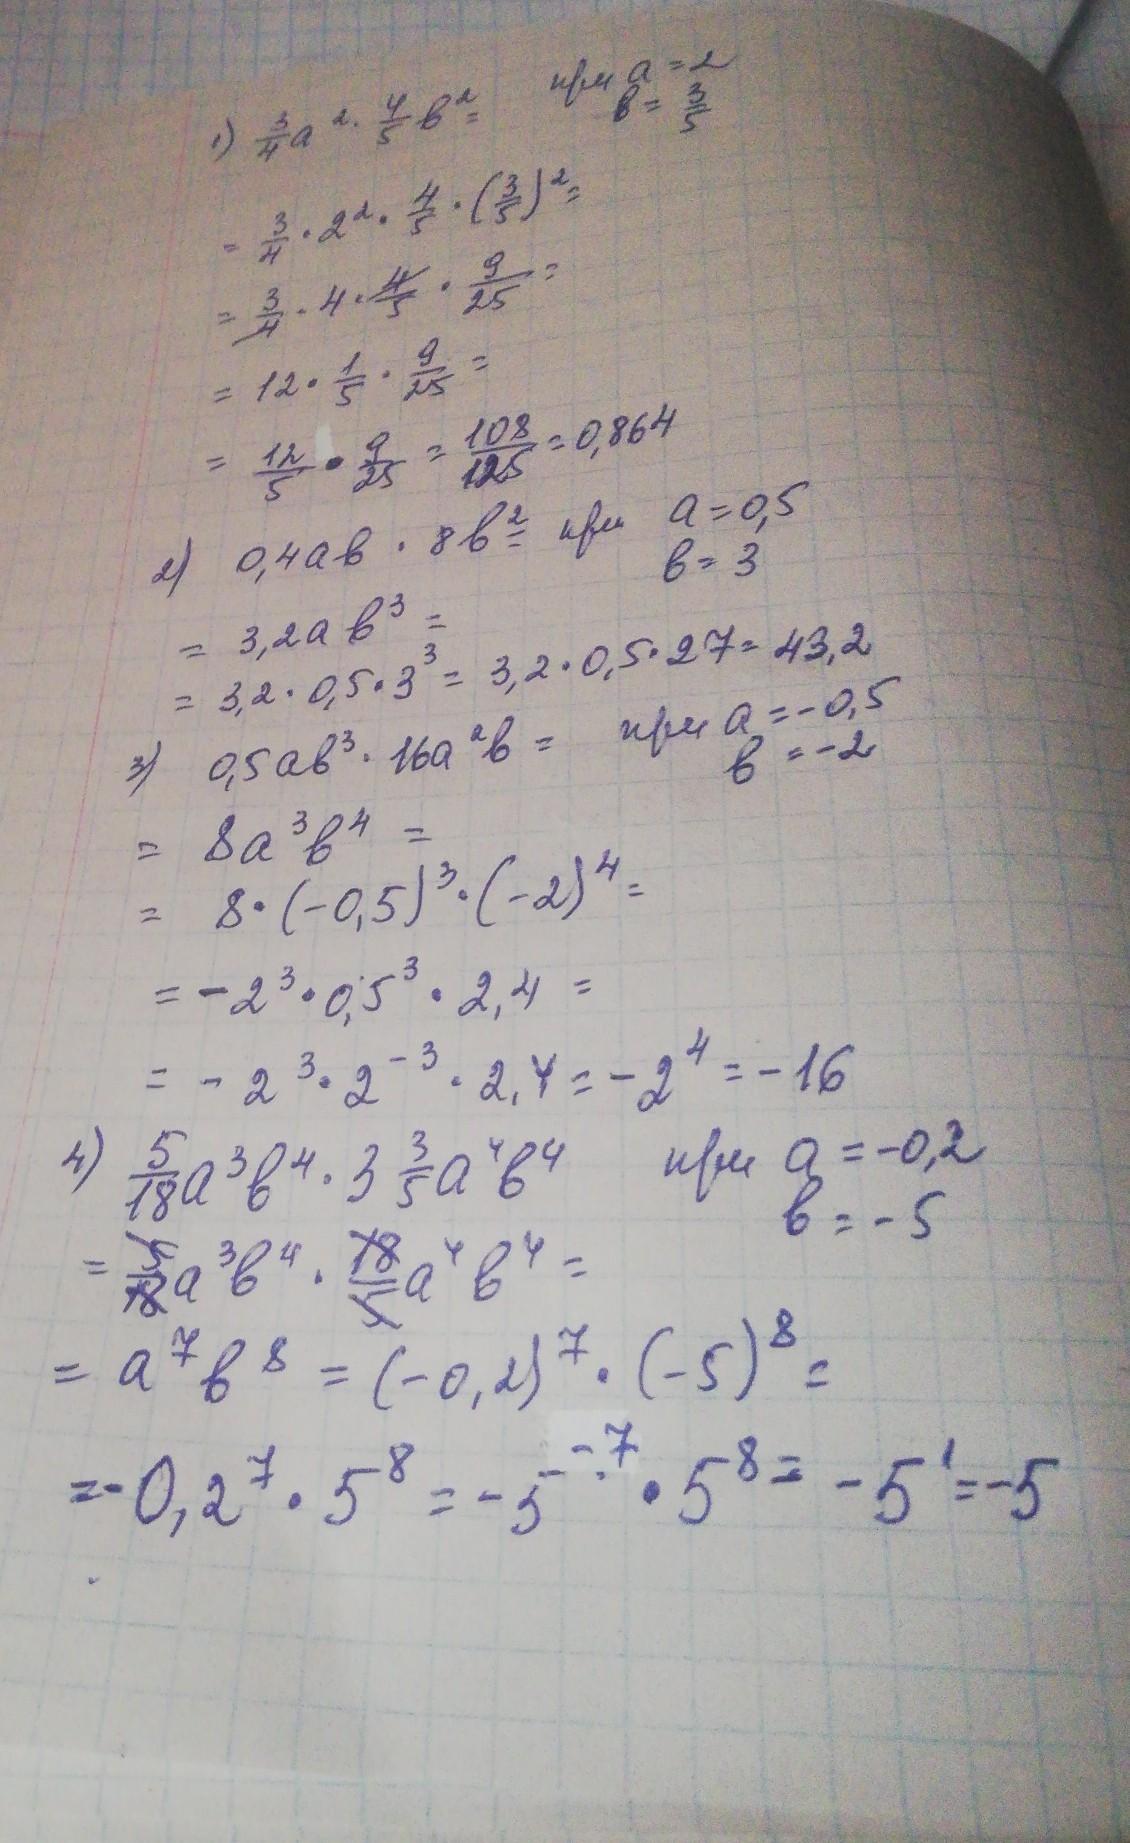 1) 3/4 a² · 4/5 в² = при a = 2
в = 3/5
= 3/4 · 2² · 4/5 · (3/5)² =
= 3/4 · 4 · 4/5 · 9/25 =
= 12 · 1/5 · 9/25 =
= 12/5 · 9/25 = 108/125 = 0,864
2) 0,4aв · 8в² = при a = 0,5
в = 3
= 3,2aв³ =
= 3,2 · 0,5 · 3³ = 3,2 · 0,5 · 27 = 43,2
3) 0,5aв³ · 16a²в = при a = -0,5
в = -2
= 8a³в⁴ =
= 8 · (-0,5)³ · (-2)⁴ =
= -2³ · 0,5³ · 2,4 =
= -2³ · 2⁻³ · 2,4 = -2⁴ = -16
4) 5/18 a³в⁴ · 3 3/5 a⁴в⁴ при a = -0,2
в = -5
= 5/18 a³в⁴ · 18/5 a⁴в⁴ =
= a⁷в⁸ = (-0,2)⁷ · (-5)⁸ =
= -0,2⁷ · 5⁸ = -5⁻⁷ · 5⁸ = -5¹ = -5